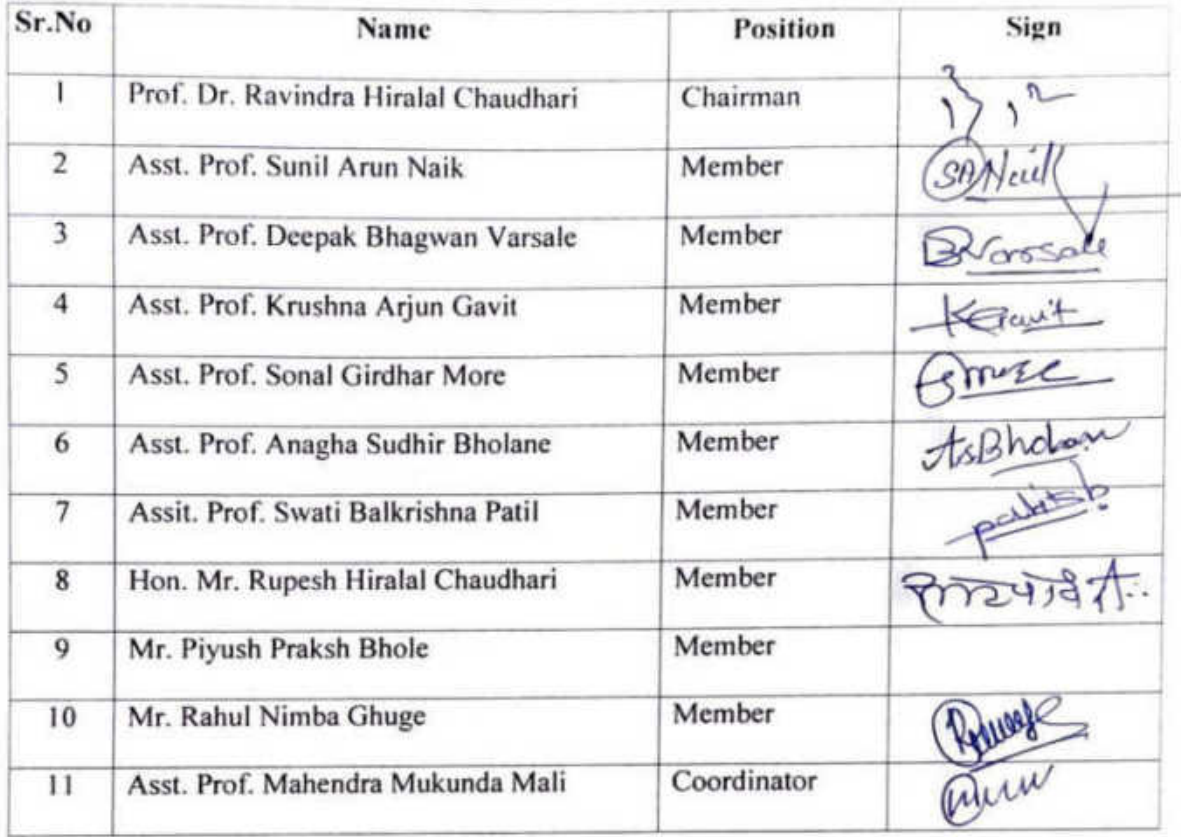 Sr.No Name Position Sign
1 Prof. Dr. Ravindra Hiralal Chaudhari Chairman
2 Asst. Prof. Sunil Arun Naik Member SANaik
3 Asst. Prof. Deepak Bhagwan Varsale Member
4 Asst. Prof. Krushna Arjun Gavit Member KGavit
5 Asst. Prof. Sonal Girdhar More Member
6 Asst. Prof. Anagha Sudhir Bholane Member
7 Assit. Prof. Swati Balkrishna Patil Member
8 Hon. Mr. Rupesh Hiralal Chaudhari Member
9 Mr. Piyush Praksh Bhole Member
10 Mr. Rahul Nimba Ghuge Member
11 Asst. Prof. Mahendra Mukunda Mali Coordinator